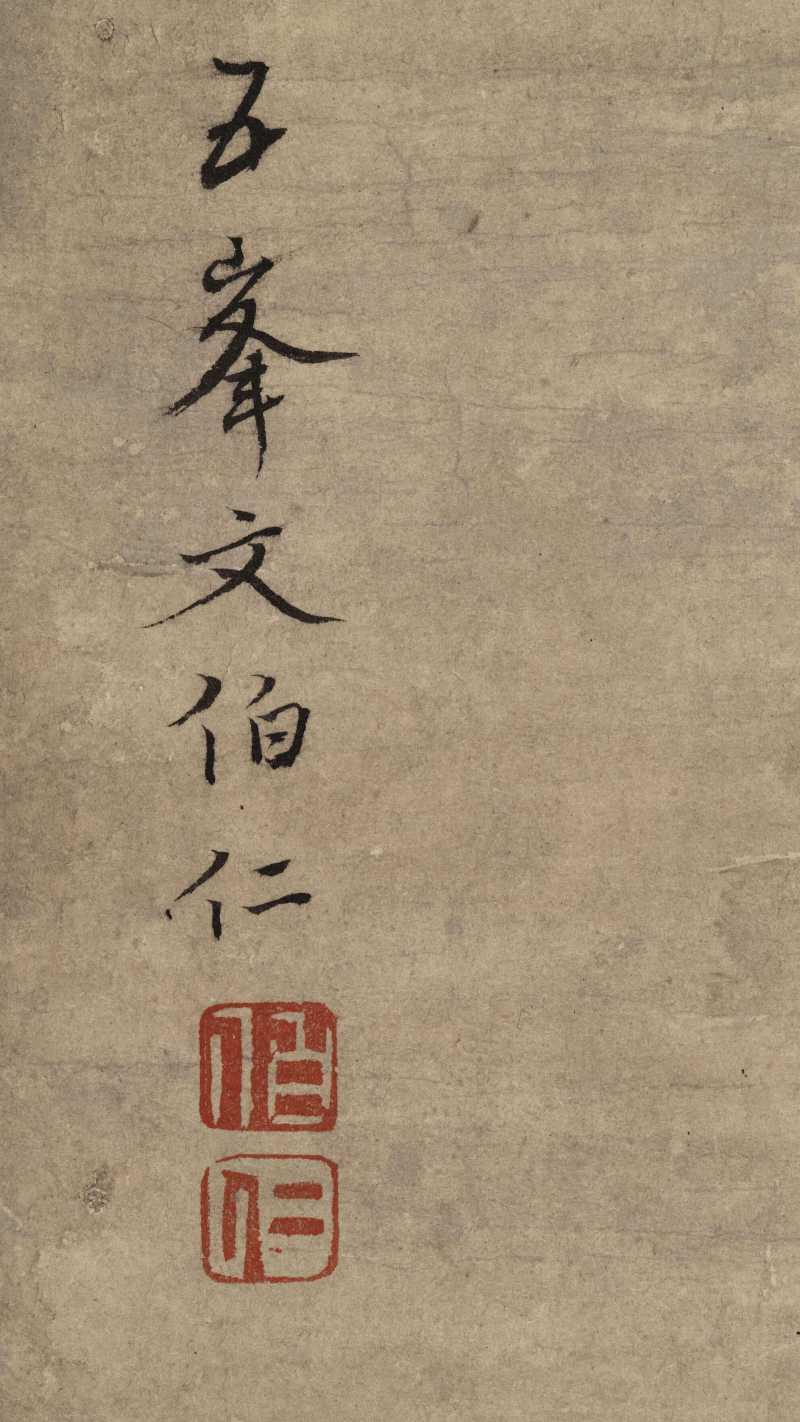 五峯文伯仁
伯
仁